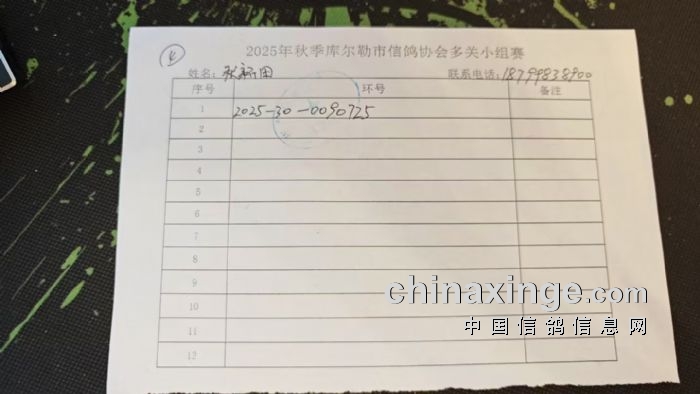 2025年秋季库尔勒市信鸽协会多关小组赛
姓名：张新田 联系电话：18799838900
序号 环号 备注
1 2025-30-0090725
2
3
4
5
6
7
8
9
10
11
12
chinaxinge.com
中国信鸽信息网